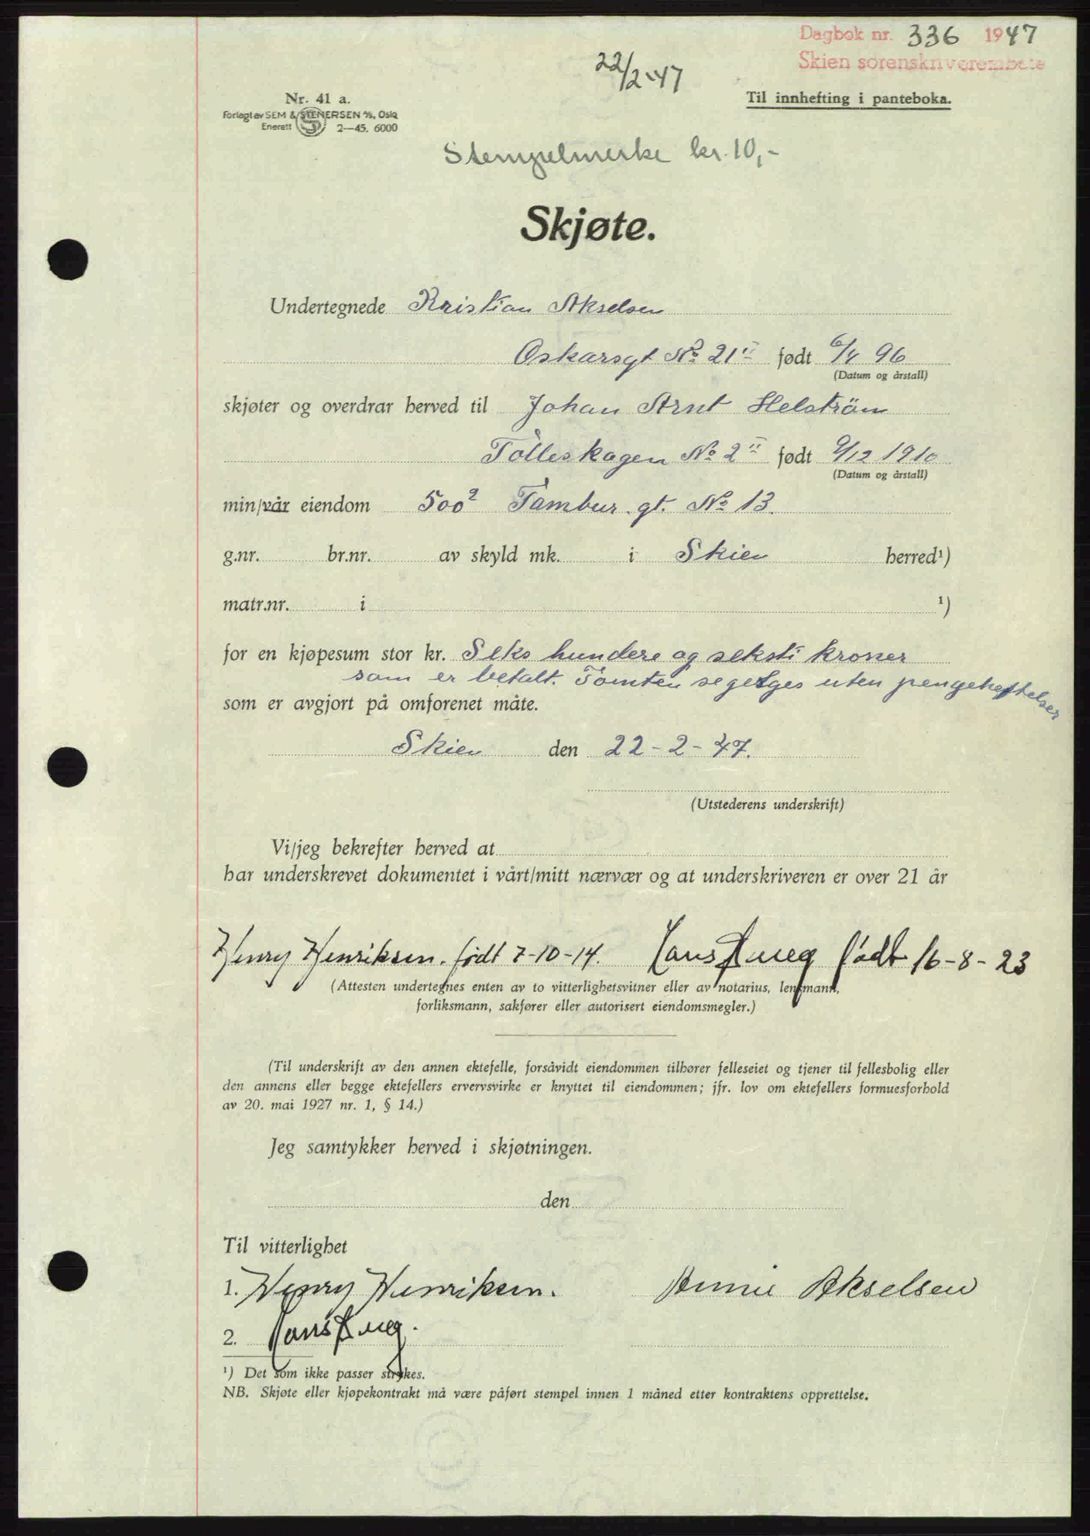 Dagbok nr. 336 1947
Skien sorenskriverembete
22/2-47
Nr. 41 a.
Forlagt av SEM & STENERSEN A/S, Oslo
Enerett 2—45. 6000
Til innhefting i panteboka.
Stempelmerke kr. 10,-
Skjøte.
Undertegnede Kristian Akselsen
Oskarsgt No 21 II født 6/4 96
(Datum og årstall)
skjøter og overdrar herved til Johan Arnt Helström
Tolleskogen No 2 II født 9/12 1910
(Datum og årstall)
min/vår eiendom 500² Tambur gt. No 13.
g.nr. br.nr. av skyld mk. i Skien herred¹)
matr.nr. i ¹)
for en kjøpesum stor kr. Seks hundere og seksti kroner
som er betalt. Tomten segelges uten pengeheftelser
som er avgjort på omforenet måte.
Skien den 22-2-47.
(Utstederens underskrift)
Vi/jeg bekrefter herved at
har underskrevet dokumentet i vårt/mitt nærvær og at underskriveren er over 21 år
Henry Henriksen. født 7-10-14. Hans født 16-8-23
(Attesten undertegnes enten av to vitterlighetsvitner eller av notarius, lensmann,
forliksmann, sakfører eller autorisert eiendomsmegler.)
(Til underskrift av den annen ektefelle, forsåvidt eiendommen tilhører felleseiet og tjener til fellesbolig eller
den annens eller begge ektefellers ervervsvirke er knyttet til eiendommen; jfr. lov om ektefellers formuesforhold
av 20. mai 1927 nr. 1, § 14.)
Jeg samtykker herved i skjøtningen.
den
Til vitterlighet
1. Henry Henriksen. Annie Akselsen
2. Hans
¹) Det som ikke passer strykes.
NB. Skjøte eller kjøpekontrakt må være påført stempel innen 1 måned etter kontraktens opprettelse.